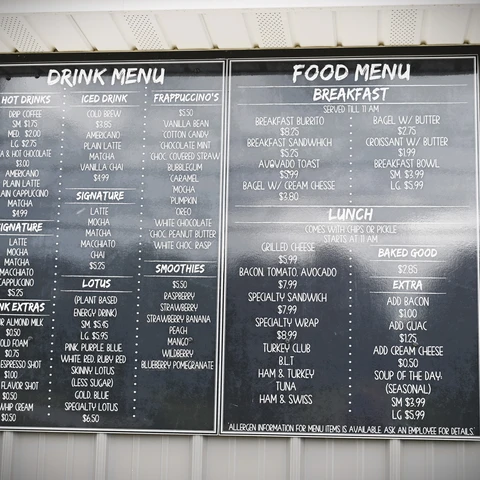 DRINK MENU
HOT DRINKS
DRIP COFFEE
SM. $1.75
MED. $2.00
LG $2.75
& HOT CHOCOLATE
$3.00
AMERICANO
PLAIN LATTE
PLAIN CAPPUCCINO
MATCHA
$4.99
SIGNATURE
LATTE
MOCHA
MATCHA
MACCHIATO
CAPPUCCINO
$5.25
EXTRAS
ALMOND MILK
$0.50
COLD FOAM
$0.75
ESPRESSO SHOT
$1.00
FLAVOR SHOT
$0.50
WHIP CREAM
$0.50
ICED DRINK
COLD BREW
$3.85
AMERICANO
PLAIN LATTE
MATCHA
VANILLA CHAI
$4.99
SIGNATURE
LATTE
MOCHA
MATCHA
MACCHIATO
CHAI
$5.25
LOTUS
(PLANT BASED
ENERGY DRINK)
SM $5.45
LG $5.95
PINK PURPLE BLUE
WHITE RED RUBY RED
SKINNY LOTUS
(LESS SUGAR)
GOLD BLUE
SPECIALTY LOTUS
$6.50
FRAPPUCCINO'S
$5.50
VANILLA BEAN
COTTON CANDY
CHOCOLATE MINT
CHOC COVERED STRAW
BUBBLEGUM
CARAMEL
MOCHA
PUMPKIN
OREO
WHITE CHOCOLATE
CHOC PEANUT BUTTER
WHITE CHOC RASP
SMOOTHIES
$5.50
RASPBERRY
STRAWBERRY
STRAWBERRY BANANA
PEACH
MANGO
WILDBERRY
BLUEBERRY POMEGRANATE
FOOD MENU
BREAKFAST
SERVED TILL 11 AM
BREAKFAST BURRITO
$8.25
BREAKFAST SANDWICH
$5.25
AVOVADO TOAST
$5.99
BAGEL W/ CREAM CHESSE
$3.80
BAGEL W/ BUTTER
$2.75
CROISSANT W/ BUTTER
$1.99
BREAKFAST BOWL
SM. $3.99
LG $5.99
LUNCH
COMES WITH CHIPS OR PICKLE
STARTS AT 11 AM
GRILLED CHEESE
$5.99
BACON, TOMATO, AVOCADO
$7.99
SPECIALTY SANDWICH
$7.99
SPECIALTY WRAP
$8.99
TURKEY CLUB
B.L.T
HAM & TURKEY
TUNA
HAM & SWISS
BAKED GOOD
$2.85
EXTRA
ADD BACON
$1.00
ADD GUAC
$1.25
ADD CREAM CHEESE
$0.50
SOUP OF THE DAY:
(SEASONAL)
SM $3.99
LG $5.99
*ALLERGEN INFORMATION FOR MENU ITEMS IS AVAILABLE. ASK AN EMPLOYEE FOR DETAILS*